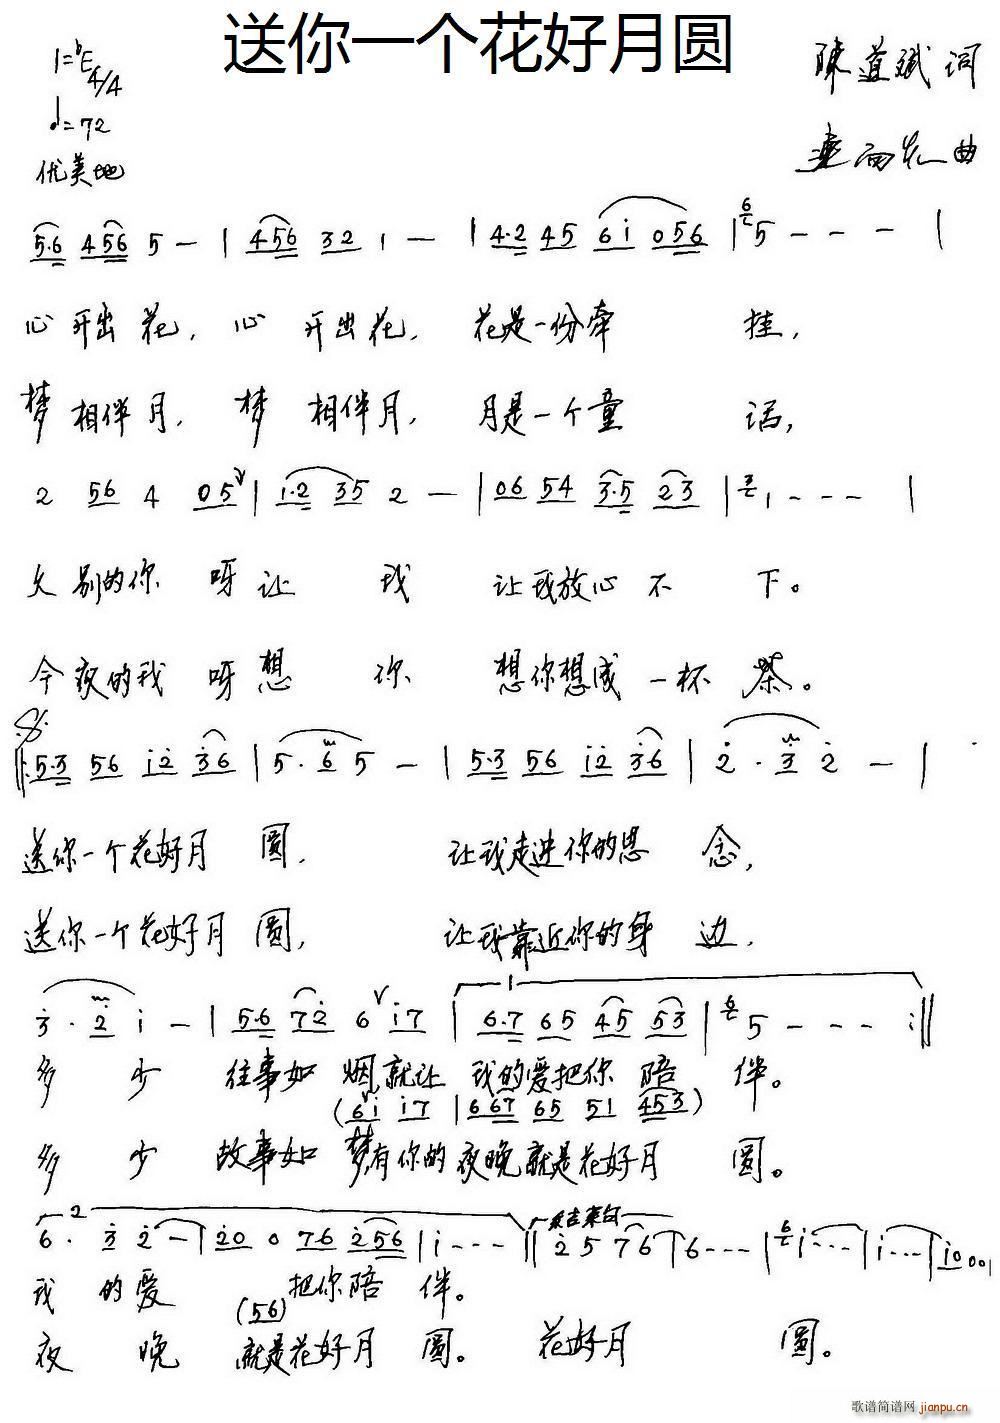 送你一个花好月圆
1=♭E 4/4
♩=72
优美地
陈道斌 词
曲
5·6 456 5 — | 456 32 1 — | 4·2 45 6i 056 | 5 — — — |
心开出花，心 开出花，花是一份牵 挂，
梦相伴月，梦 相伴月，月是一个童 话，
2 56 4 05 | i·2 35 2 — | 06 54 3·5 23 | 1 — — — |
久别的你 呀让 我 让我放心不 下。
今夜的我 呀想 你 想你想成一杯 茶。
5·3 56 i2 36 | 5·6 5 — | 5·3 56 i2 36 | 2·3 2 — |
送你一个花好月 圆， 让我走进你的思 念，
送你一个花好月 圆， 让我靠近你的身 边，
3·2 i — | 5·6 72 6 i7 | 1 6·7 65 45 53 | 5 — — — :||
多 少 往事如 烟就让 我的爱把你 陪 伴。
(6i i7 | 667 65 51 453)
多 少 故事如 梦有你的夜晚就是花好月 圆。
2 6·3 2 — | 20 0 76 256 | i — — — || 结束句 2 5 76 | 6 — — — | i — — — | i — — — | i0 0 0 |
我 的爱 把你陪 伴。
(56)
夜 晚 就是花好月 圆。 花好月 圆。
歌谱简谱网 jianpu.cn